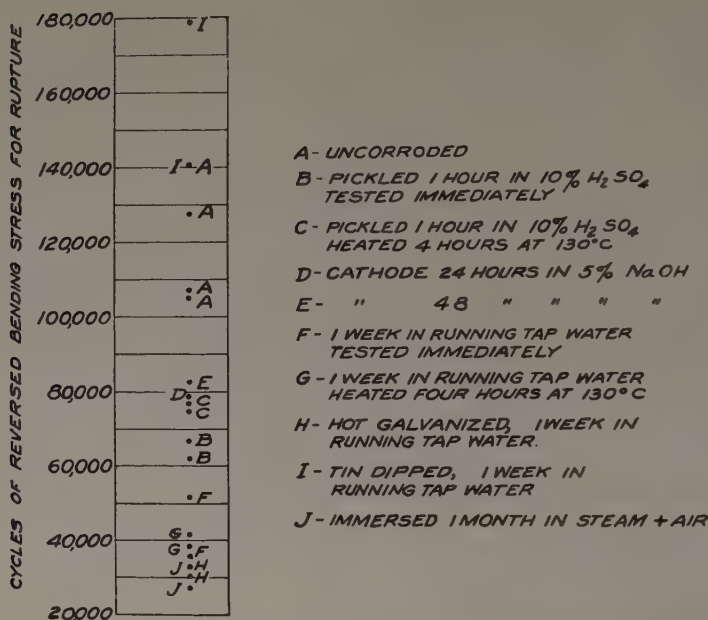 CYCLES OF REVERSED BENDING STRESS FOR RUPTURE
180,000
160,000
140,000
120,000
100,000
80,000
60,000
40,000
20,000
I
I A
A
A
A
E
D
C
C
B
B
F
G
G F
J H
H
J
A- UNCORRODED
B- PICKLED 1 HOUR IN 10% H2 SO4
TESTED IMMEDIATELY
C- PICKLED 1 HOUR IN 10% H2 SO4
HEATED 4 HOURS AT 130°C
D- CATHODE 24 HOURS IN 5% NaOH
E- " 48 " " " "
F- 1 WEEK IN RUNNING TAP WATER
TESTED IMMEDIATELY
G- 1 WEEK IN RUNNING TAP WATER
HEATED FOUR HOURS AT 130°C
H- HOT GALVANIZED, 1 WEEK IN
RUNNING TAP WATER.
I- TIN DIPPED, 1 WEEK IN
RUNNING TAP WATER
J- IMMERSED 1 MONTH IN STEAM + AIR